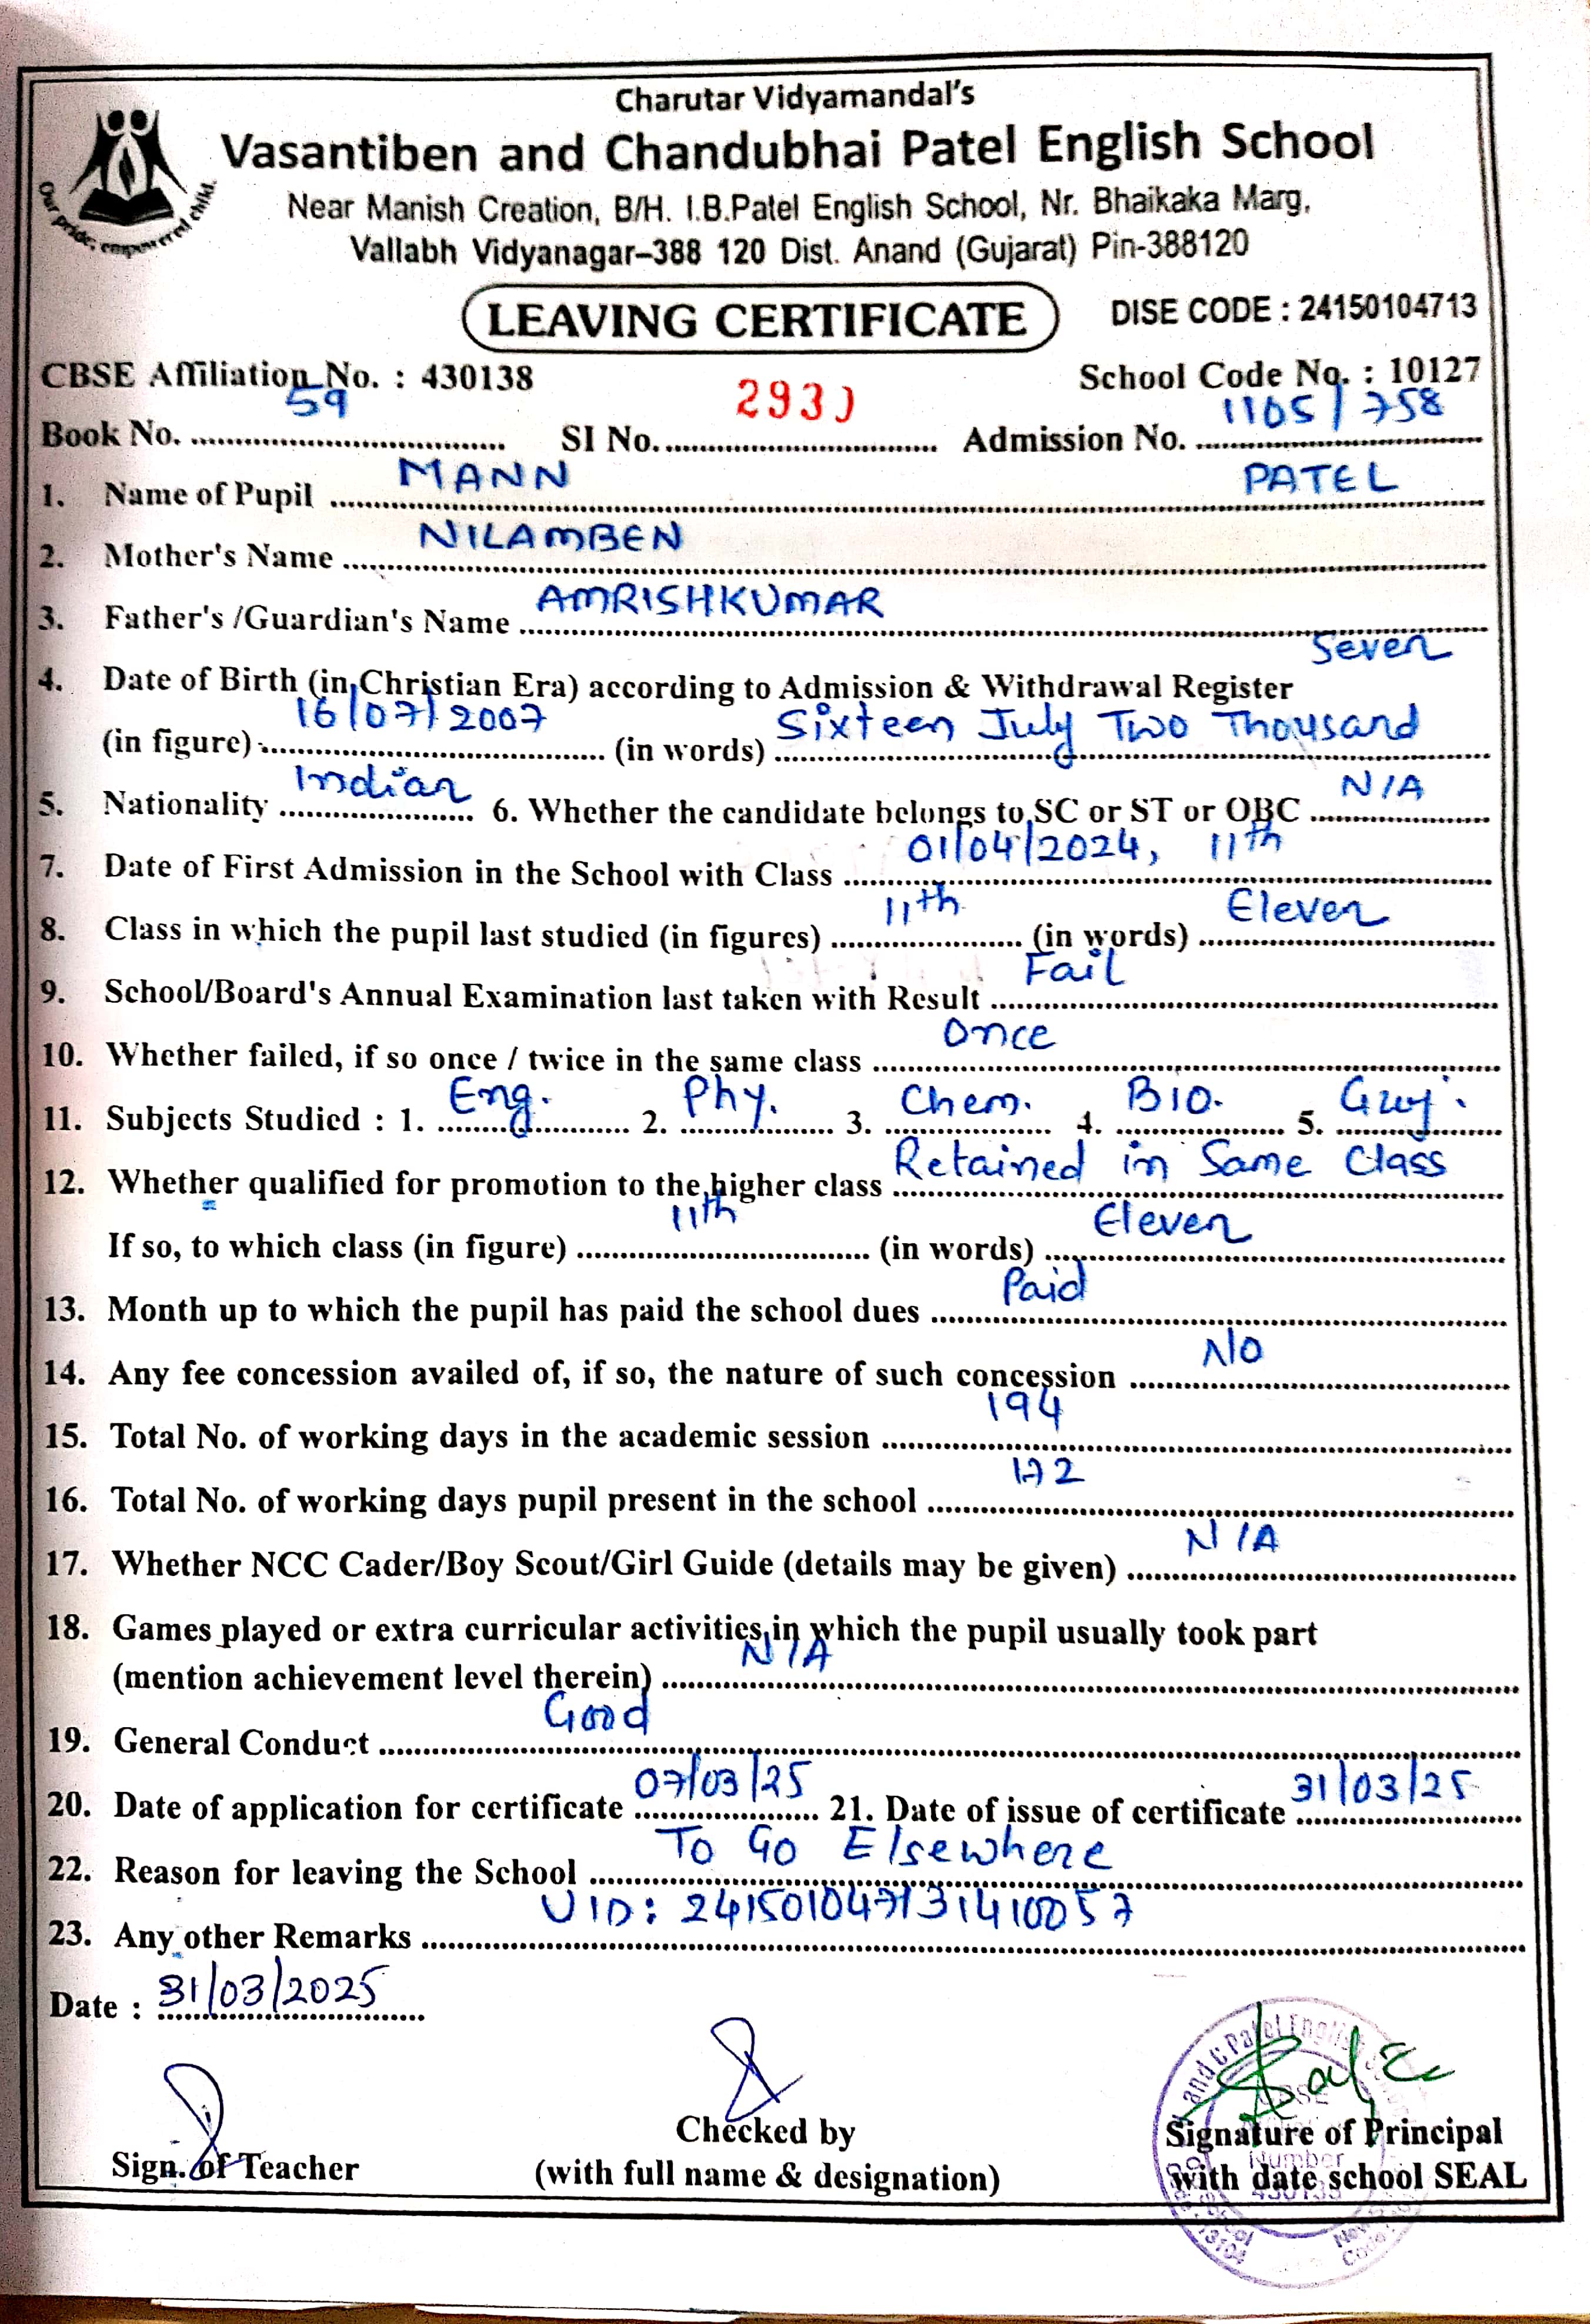 Charutar Vidyamandal's
Vasantiben and Chandubhai Patel English School
Our pride; empowered child.
Near Manish Creation, B/H. I.B.Patel English School, Nr. Bhaikaka Marg,
Vallabh Vidyanagar-388 120 Dist. Anand (Gujarat) Pin-388120
LEAVING CERTIFICATE DISE CODE : 24150104713
CBSE Affiliation No. : 430138 School Code No. : 10127
Book No. 59 SI No. 2931 Admission No. 1105/758
1. Name of Pupil MANN PATEL
2. Mother's Name NILAMBEN
3. Father's /Guardian's Name AMRISHKUMAR
4. Date of Birth (in Christian Era) according to Admission & Withdrawal Register
(in figure) 16/07/2007 (in words) Sixteen July Two Thousand Seven
5. Nationality Indian 6. Whether the candidate belongs to SC or ST or OBC N/A
7. Date of First Admission in the School with Class 01/04/2024, 11th
8. Class in which the pupil last studied (in figures) 11th (in words) Eleven
9. School/Board's Annual Examination last taken with Result Fail
10. Whether failed, if so once / twice in the same class Once
11. Subjects Studied : 1. Eng. 2. Phy. 3. Chem. 4. BIO. 5. Guj.
12. Whether qualified for promotion to the higher class Retained in Same Class
If so, to which class (in figure) 11th (in words) Eleven
13. Month up to which the pupil has paid the school dues Paid
14. Any fee concession availed of, if so, the nature of such concession No
15. Total No. of working days in the academic session 194
16. Total No. of working days pupil present in the school 172
17. Whether NCC Cader/Boy Scout/Girl Guide (details may be given) N/A
18. Games played or extra curricular activities in which the pupil usually took part
(mention achievement level therein) N/A
19. General Conduct Good
20. Date of application for certificate 07/03/25 21. Date of issue of certificate 31/03/25
22. Reason for leaving the School To Go Elsewhere
23. Any other Remarks UID: 241501047131410057
Date : 31/03/2025
Sign. of Teacher
Checked by
(with full name & designation)
Signature of Principal
with date school SEAL